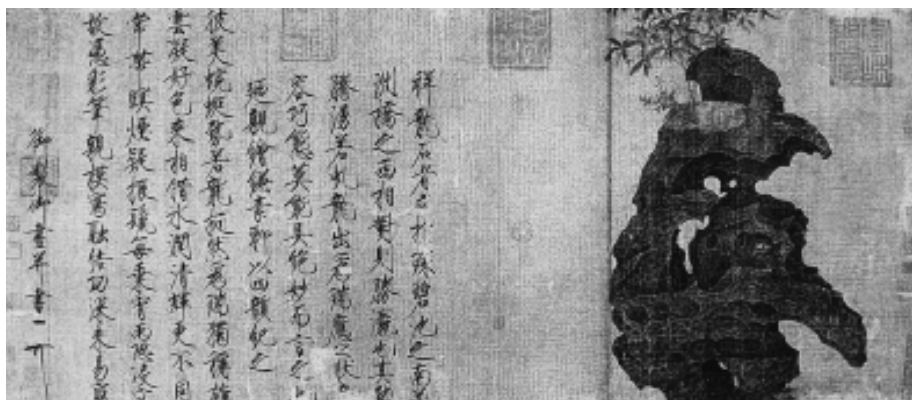 祥龍石者立於環碧池之南芳
洲橋之西相對則勝瀛也其勢
騰湧若虬龍出為瑞應之狀奇
容巧態莫能具絕妙而言之也
廼親繪縑素聊以四韻紀之
彼美蜿蜒勢若龍挺然為瑞獨稱雄
雲凝好色來相借水潤清輝更不同
常帶瞑煙疑振鬣每乘宵雨恐凌空
故憑彩筆親模寫融結功深未易窮
御製御畫并書